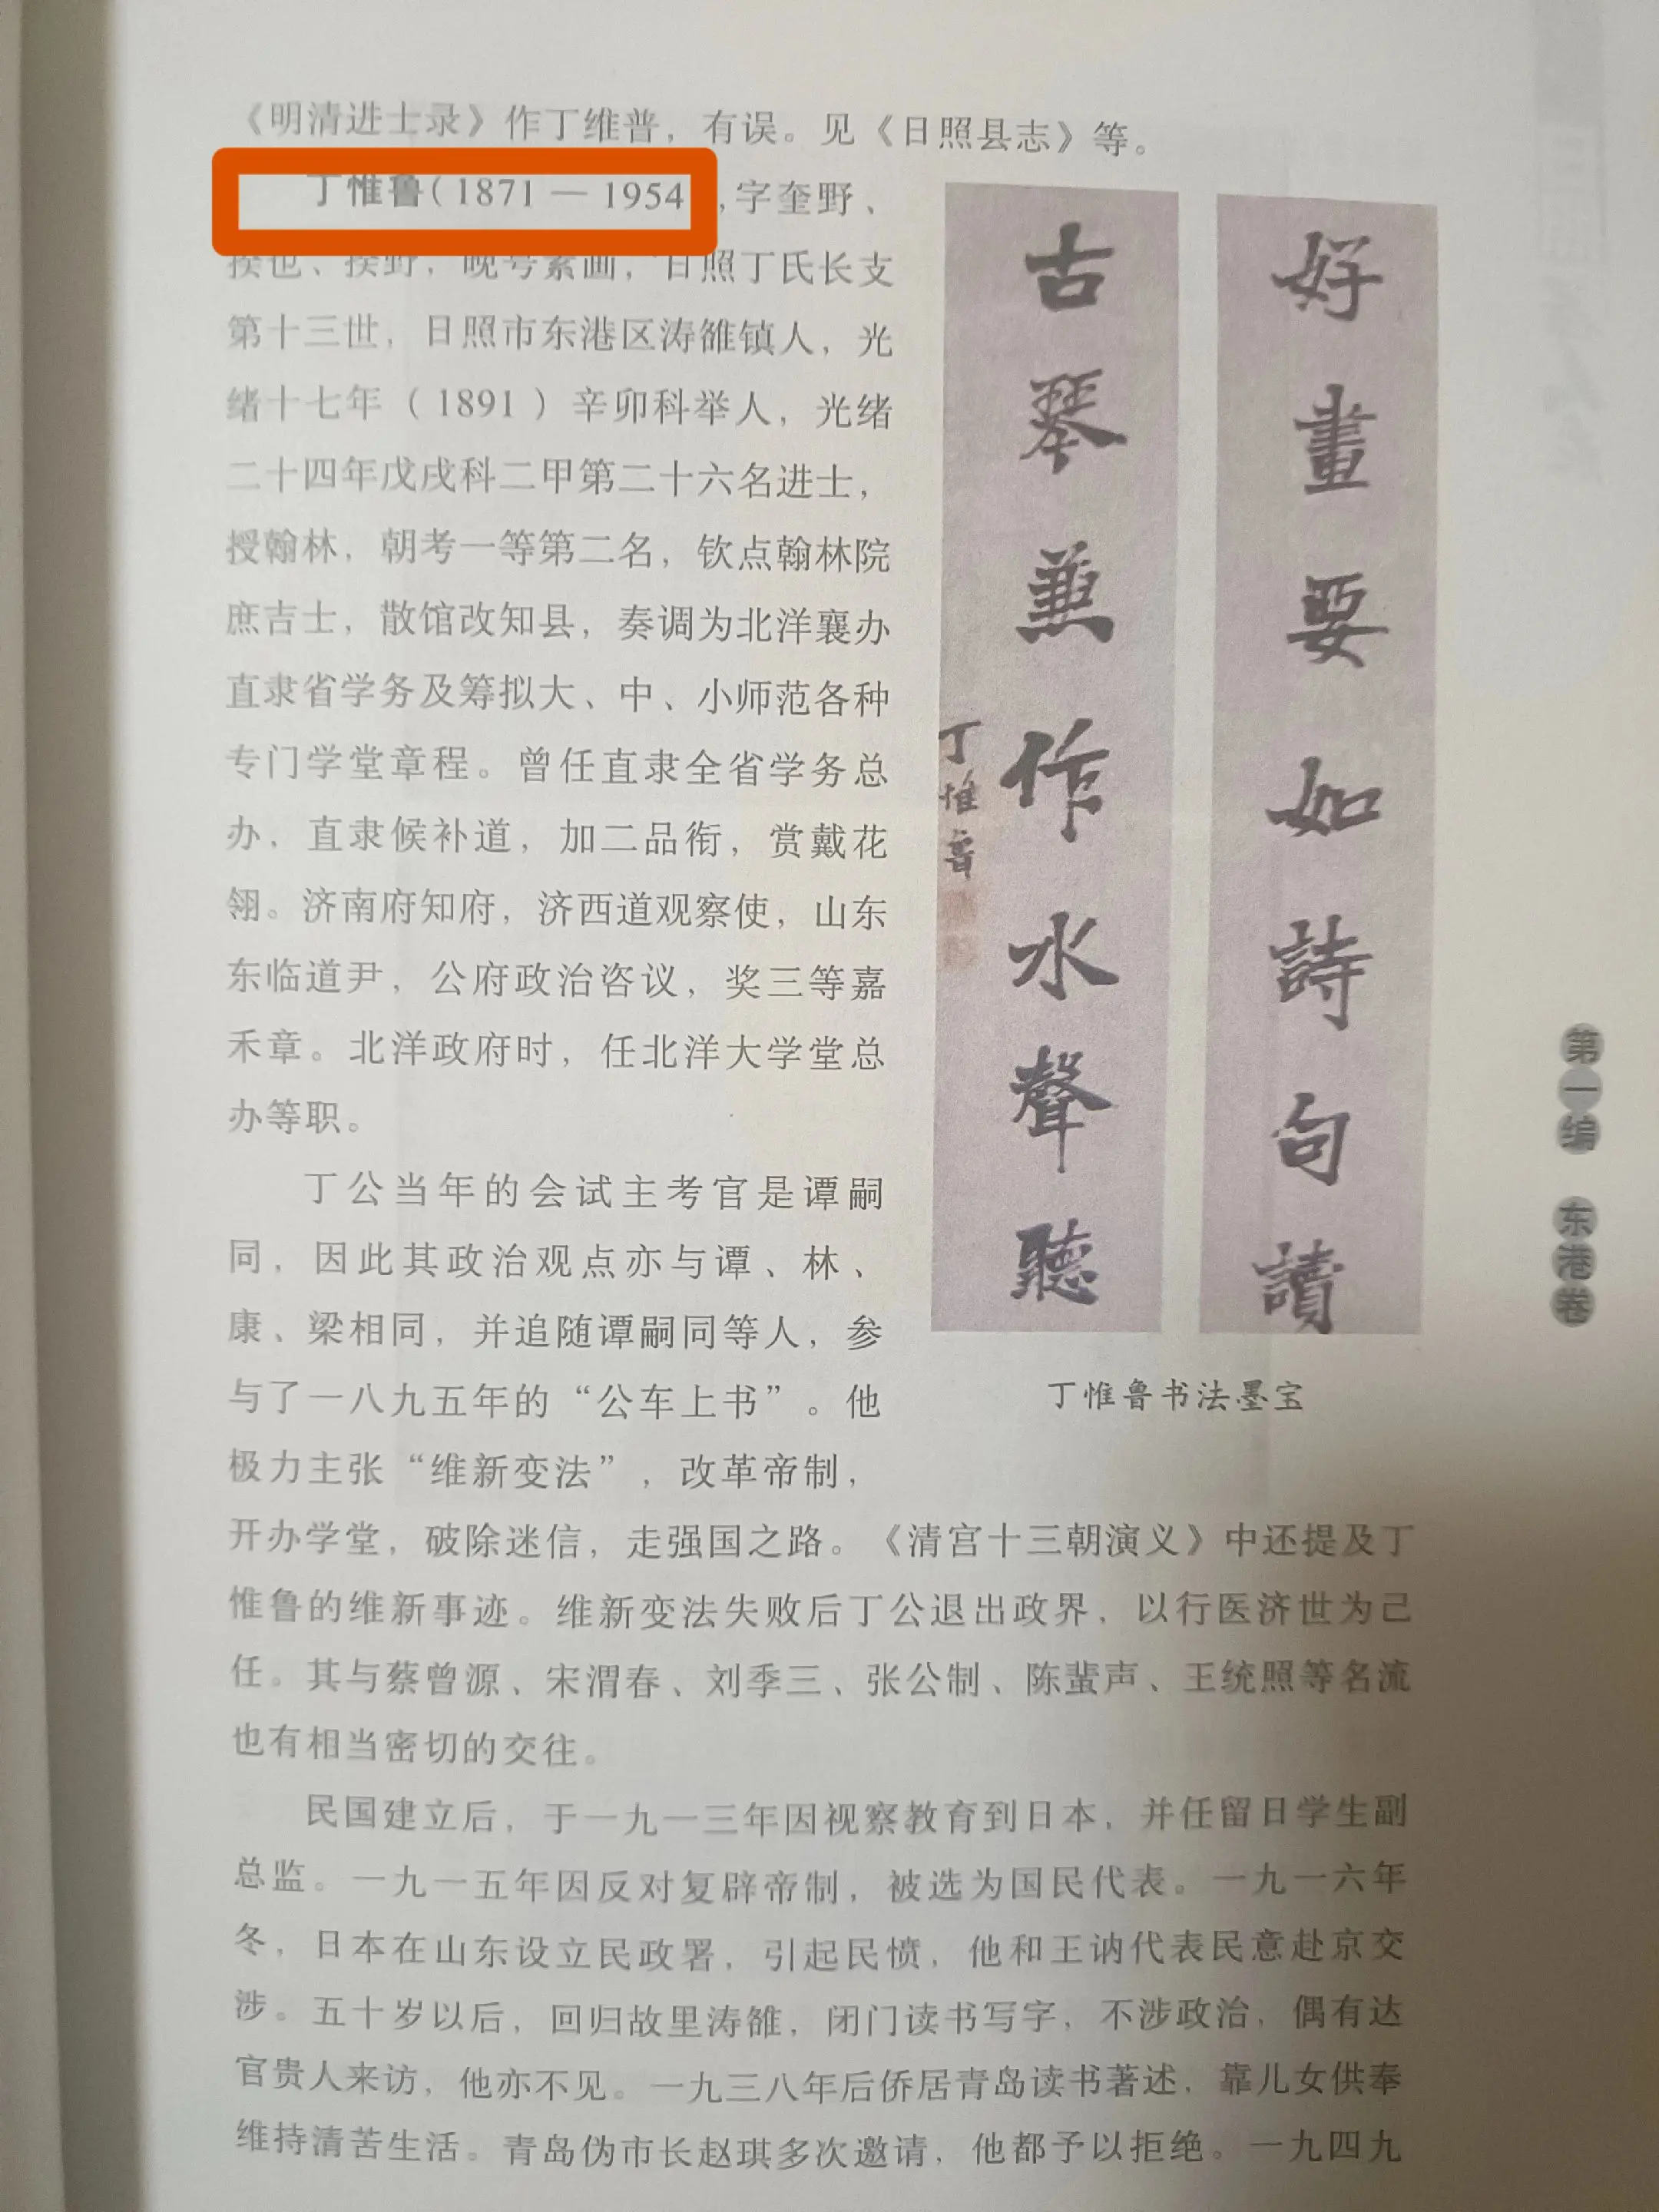 《明清进士录》作丁维普，有误。见《日照县志》等。
丁惟鲁（1871 — 1954 ，字奎野、
揆也、揆野，晚号素画，日照丁氏长支
第十三世，日照市东港区涛雒镇人，光
绪十七年（1891）辛卯科举人，光绪
二十四年戊戌科二甲第二十六名进士，
授翰林，朝考一等第二名，钦点翰林院
庶吉士，散馆改知县，奏调为北洋襄办
直隶省学务及筹拟大、中、小师范各种
专门学堂章程。曾任直隶全省学务总
办，直隶候补道，加二品衔，赏戴花
翎。济南府知府，济西道观察使，山东
东临道尹，公府政治咨议，奖三等嘉
禾章。北洋政府时，任北洋大学堂总
办等职。
丁公当年的会试主考官是谭嗣
同，因此其政治观点亦与谭、林、
康、梁相同，并追随谭嗣同等人，参
与了一八九五年的“公车上书”。他
极力主张“维新变法”，改革帝制，
开办学堂，破除迷信，走强国之路。《清宫十三朝演义》中还提及丁
惟鲁的维新事迹。维新变法失败后丁公退出政界，以行医济世为己
任。其与蔡曾源、宋渭春、刘季三、张公制、陈蜚声、王统照等名流
也有相当密切的交往。
民国建立后，于一九一三年因视察教育到日本，并任留日学生副
总监。一九一五年因反对复辟帝制，被选为国民代表。一九一六年
冬，日本在山东设立民政署，引起民愤，他和王讷代表民意赴京交
涉。五十岁以后，回归故里涛雒，闭门读书写字，不涉政治，偶有达
官贵人来访，他亦不见。一九三八年后侨居青岛读书著述，靠儿女供奉
维持清苦生活。青岛伪市长赵琪多次邀请，他都予以拒绝。一九四九
好畫要如詩句讀
古琴兼作水聲聽
丁惟魯
丁惟鲁书法墨宝
第一编 东港卷